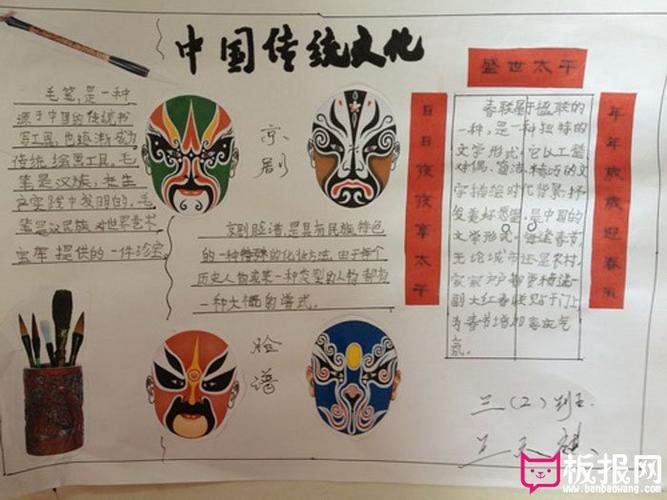 中国传统文化
毛笔,是一种
源于中国的传统书
写工具,也逐渐成为
传统绘画工具,毛
笔是汉族,在生
产实践中发明的,毛
笔是汉民族对世界艺术
宝库提供的一件珍宝
京剧
京剧脸谱,是具有民族特色
的一种特殊的化妆方法,由于每个
历史人物或某一种类型的人物都有
一种大概的谱式。
脸谱
盛世太平
日日夜夜享太平
年年岁岁迎春氣
春联属于楹联的
一种,是一种独特的
文学形式,它以工整
对偶、简洁、精巧的文
字描绘时代背景,抒
发美好愿望,是中国的
文学形式。每逢春节,
无论城市还是农村,
家家户户都要精选一
副大红春联贴于门上,
为春节增加喜庆气
氛。
三(2)班
板报网
www.banbaowang.com